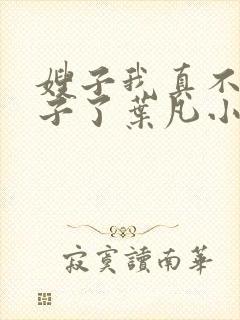 嫂子我真不
子了葉凡小
寂寞讀南華